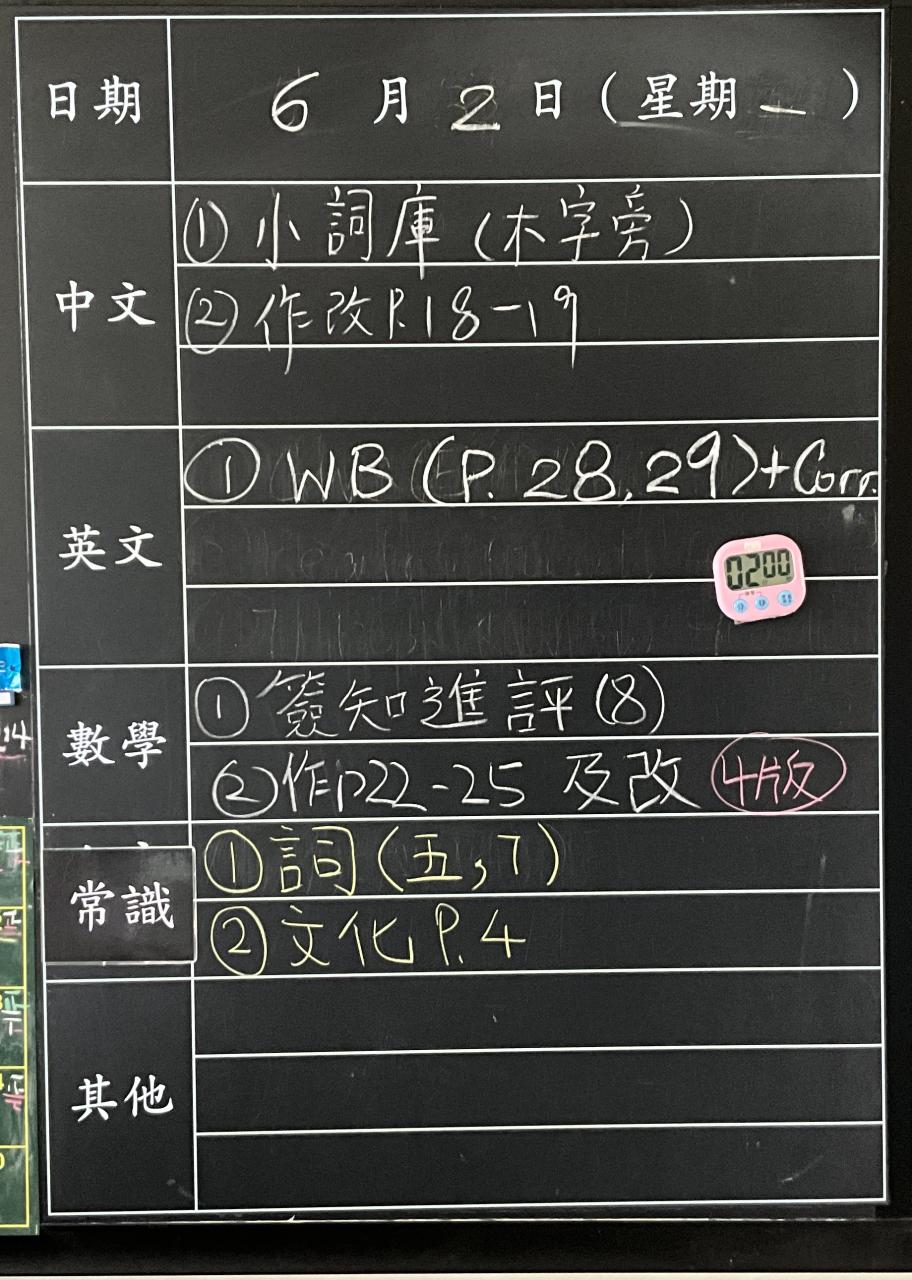 日期 6 月 2 日 ( 星期 一 )
中文
① 小詞庫 (木字旁)
② 作改P.18-19
英文
① WB (P. 28, 29)+Corr.
0200
數學
① 簽知進評(8)
② 作p22-25 及改 4版
常識
① 詞(五,7)
② 文化 P.4
其他